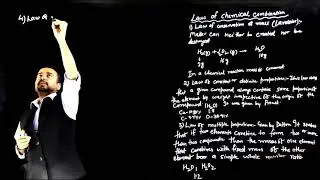 4) Law of
Laws of Chemical Combination
1) Law of conservation of mass (Lavoisier)
Matter can neither be created nor be
destroyed
H₂(g) + ½O₂(g) → H₂O
2g 16g 18g
In a chemical reaction mass is conserved
2) Law of constant or definite proportions - This law says
that a given compound always contains same proportion of
the element by weight irrespective of the origin of the
Compound (H₂O)
3) Law of multiple proportions - Given by Dalton It states
that if two elements combine to form two or more
than two compounds then the masses of one element
that combines with fixed mass of the other
element bear a simple whole number ratio
H₂O, H₂O₂
1:2